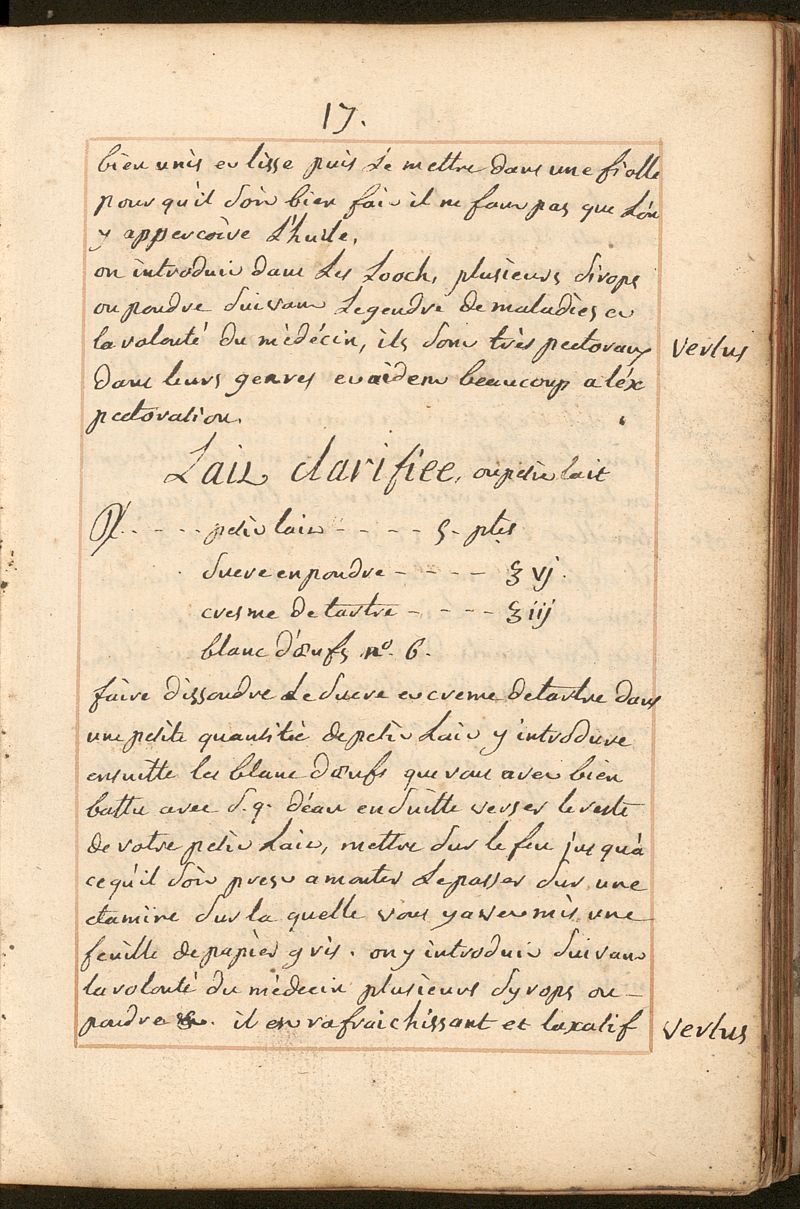 17.
bien unis et lisse puis Le mettre dans une fiolle
pour qu'il soit bien fait il ne faut pas que L'on
y appercoive L'huile,
on introduit dans Les Looch, plusieurs sirops
ou poudre suivant Le gendre de maladies et
la volonté du mèdécin, ils sont très pectoraux
vertus
dans leurs genres et aident beaucoup a l'éx
pectoration.
Lait clarifiée, ou petit lait
petit lait - - - - - 5. ptes
sucre en poudre - - - - ℥ vj.
cresme de tartre - - - - ℥ iij
blanc d'œufs n°. 6.
faire dissoudre Le sucre et creme de tartre dans
une petite quantitée de petit Lait y introduire
ensuitte les blanc d'œufs que vous avez bien
battu avec s.q. d'eau ensuitte verser le reste
de votre petit Lait, mettre sur le feu jusqu'a
ce qu'il soit prest a monter Le passer sur une
etamine sur la quelle vous y avez mis une
feuille de papier gris. on y introduit suivant
la volonté du médecin plusieurs syrops ou
poudre &. il est rafraichissant et laxatif
vertus